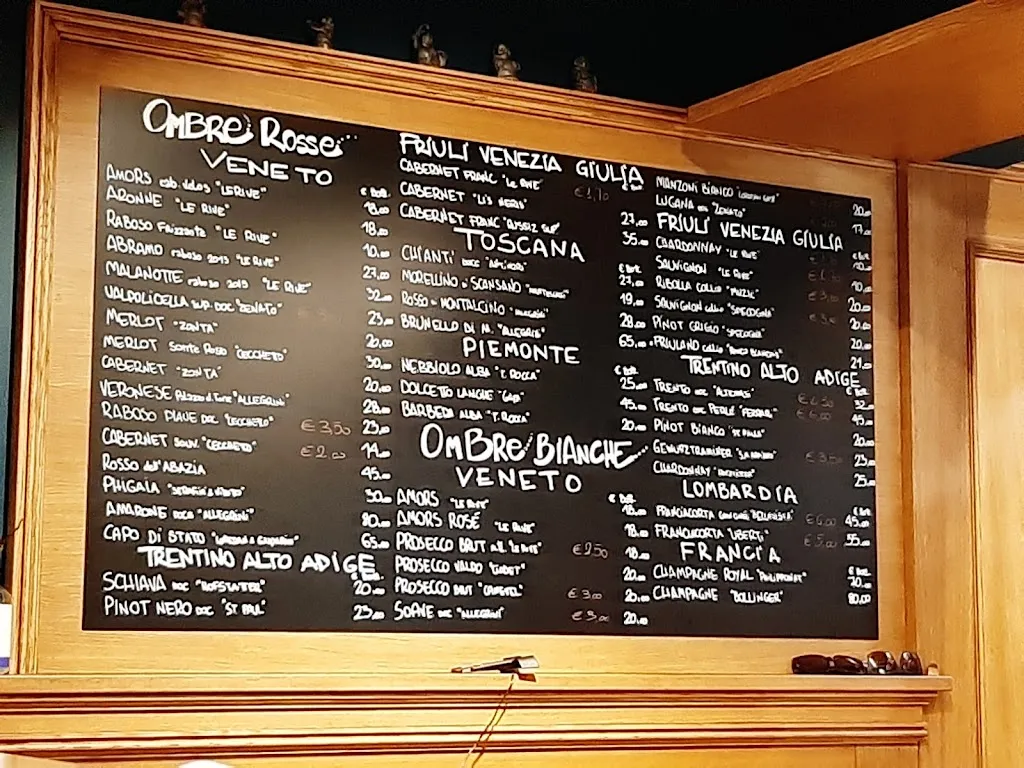 OMBRE ROSSE...
VENETO
€ BOT.
AMORS cab. "LE RIVE" 18,00
ARONNE "LE RIVE" 18,00
RABOSO Frizzante "LE RIVE" 10,00
ABRAMO raboso 2013 "LE RIVE" 27,00
MALANOTTE raboso "LE RIVE" 32,00
VALPOLICELLA SUP. DOC "ZENATO" 23,00
MERLOT "ZONTA" 20,00
MERLOT "CECCHETTO" 30,00
CABERNET "ZONTA" 20,00
VERONESE Palazzo d. Torre "ALLEGRINI" 28,00
RABOSO PIAVE DOC "CECCHETTO" € 3,50 23,00
CABERNET SAUV. "CECCHETTO" € 2,00 14,00
ROSSO dell'ABAZIA 45,00
PHIGAIA 30,00
AMARONE DOCG "ALLEGRINI" 80,00
CAPO DI STATO 65,00
TRENTINO ALTO ADIGE
€ BOT.
SCHIAVA DOC "HOFSTATER" 20,00
PINOT NERO DOC "ST PAUL" 23,00
FRIULI VENEZIA GIULIA
CABERNET FRANC "LE RIVE" € 1,70
CABERNET "LIS NERIS" 27,00
CABERNET FRANC "RUSSIZ SUP." 35,00
TOSCANA
€ BOT.
CHIANTI DOCG 27,00
MORELLINO di SCANSANO 19,00
ROSSO di MONTALCINO 28,00
BRUNELLO DI M. "ALLEGRINI" 65,00
PIEMONTE
€ BOT.
NEBBIOLO ALBA "T. ROCCA" 25,00
DOLCETTO LANGHE "GAJA" 45,00
BARBERA ALBA "T. ROCCA" 20,00
OMBRE BIANCHE...
VENETO
€ BOT.
AMORS "LE RIVE" 18,00
AMORS ROSÉ "LE RIVE" 18,00
PROSECCO BRUT "LE RIVE" € 2,50 18,00
PROSECCO VALDO 20,00
PROSECCO BRUT € 3,00 20,00
SOAVE DOC "ALLEGRINI" € 3,00 20,00
MANZONI BIANCO 20,00
LUGANA DOC "ZENATO" 17,00
FRIULI VENEZIA GIULIA
€ BOT.
CHARDONNAY "LE RIVE" 10,00
SAUVIGNON "LE RIVE" 10,00
RIBOLLA COLLIO "MUZIC" 20,00
SAUVIGNON COLLIO "SPECOGNA" 20,00
PINOT GRIGIO "SPECOGNA" 20,00
FRIULANO COLLIO 21,00
TRENTINO ALTO ADIGE
€ BOT.
TRENTO DOC "ALTEMASI" € 4,50 32,00
TRENTO DOC PERLÉ "FERRARI" € 6,00 45,00
PINOT BIANCO "ST PAULS" 20,00
GEWURZTRAMINER € 3,50 23,00
CHARDONNAY 25,00
LOMBARDIA
€ BOT.
FRANCIACORTA "BELLAVISTA" € 6,00 45,00
FRANCIACORTA "UBERTI" € 5,00 35,00
FRANCIA
€ BOT.
CHAMPAGNE ROYAL "PHILIPPONNAT" 70,00
CHAMPAGNE "BOLLINGER" 80,00